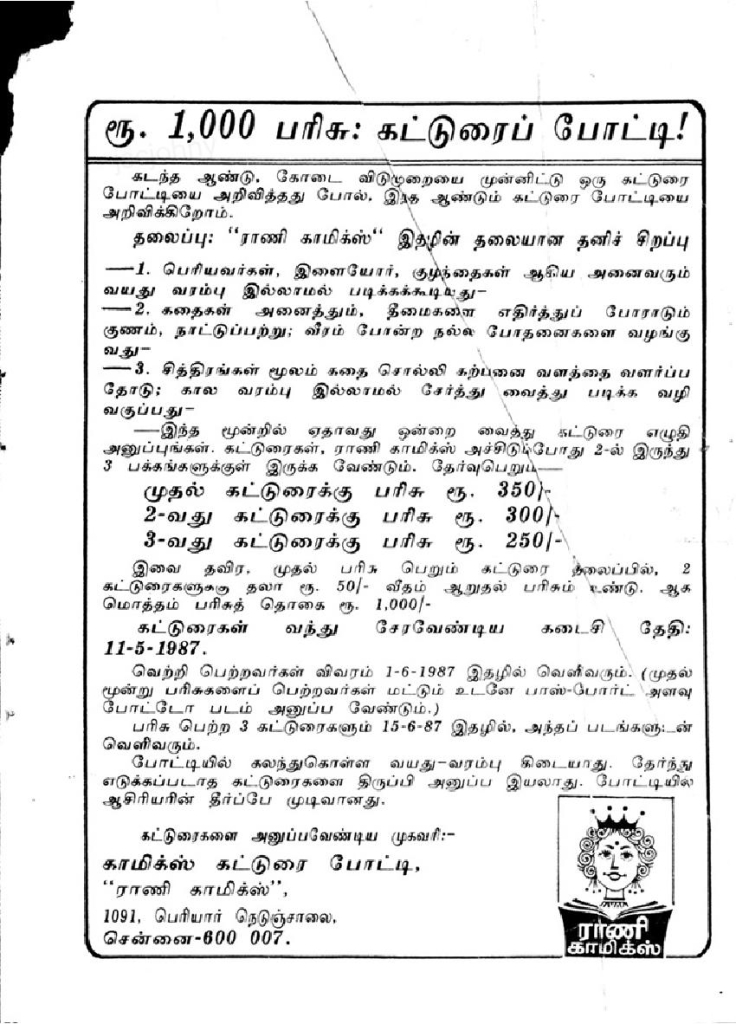 ரூ. 1,000 பரிசு: கட்டுரைப் போட்டி!
கடந்த ஆண்டு, கோடை விடுமுறையை முன்னிட்டு ஒரு கட்டுரை
போட்டியை அறிவித்தது போல், இந்த ஆண்டும் கட்டுரை போட்டியை
அறிவிக்கிறோம்.
தலைப்பு: “ராணி காமிக்ஸ்“ இதழின் தலையான தனிச் சிறப்பு
—1. பெரியவர்கள், இளையோர், குழந்தைகள் ஆகிய அனைவரும்
வயது வரம்பு இல்லாமல் படிக்கக்கூடியது—
—2. கதைகள் அனைத்தும், தீமைகளை எதிர்த்துப் போராடும்
குணம், நாட்டுப்பற்று; வீரம் போன்ற நல்ல போதனைகளை வழங்கு
வது—
—3. சித்திரங்கள் மூலம் கதை சொல்லி கற்பனை வளத்தை வளர்ப்ப
தோடு; கால வரம்பு இல்லாமல் சேர்த்து வைத்து படிக்க வழி
வகுப்பது—
—இந்த மூன்றில் ஏதாவது ஒன்றை வைத்து கட்டுரை எழுதி
அனுப்புங்கள். கட்டுரைகள், ராணி காமிக்ஸ் அச்சிடும்போது 2-ல் இருந்து
3 பக்கங்களுக்குள் இருக்க வேண்டும். தேர்வுபெறும்—
முதல் கட்டுரைக்கு பரிசு ரூ. 350/-
2-வது கட்டுரைக்கு பரிசு ரூ. 300/-
3-வது கட்டுரைக்கு பரிசு ரூ. 250/-
இவை தவிர, முதல் பரிசு பெறும் கட்டுரை தலைப்பில், 2
கட்டுரைகளுக்கு தலா ரூ. 50/- வீதம் ஆறுதல் பரிசும் உண்டு. ஆக
மொத்தம் பரிசுத் தொகை ரூ. 1,000/-
கட்டுரைகள் வந்து சேரவேண்டிய கடைசி தேதி:
11-5-1987.
வெற்றி பெற்றவர்கள் விவரம் 1-6-1987 இதழில் வெளிவரும். (முதல்
மூன்று பரிசுகளைப் பெற்றவர்கள் மட்டும் உடனே பாஸ்-போர்ட் அளவு
போட்டோ படம் அனுப்ப வேண்டும்.)
பரிசு பெற்ற 3 கட்டுரைகளும் 15-6-87 இதழில், அந்தப் படங்களுடன்
வெளிவரும்.
போட்டியில் கலந்துகொள்ள வயது—வரம்பு கிடையாது. தேர்ந்து
எடுக்கப்படாத கட்டுரைகளை திருப்பி அனுப்ப இயலாது. போட்டியில்
ஆசிரியரின் தீர்ப்பே முடிவானது.
கட்டுரைகளை அனுப்பவேண்டிய முகவரி:-
காமிக்ஸ் கட்டுரை போட்டி,
“ராணி காமிக்ஸ்”,
1091, பெரியார் நெடுஞ்சாலை,
சென்னை-600 007.
ராணி
காமிக்ஸ்